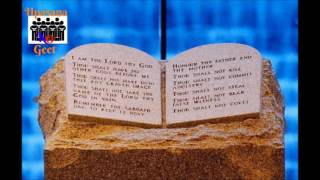 Upasana
Geet
I am the Lord thy God
Thou shalt have no
other gods before me
Thou shalt not make unto
thee any graven image
Thou shalt not take the
name of the Lord thy
God in vain
Remember the Sabbath
day to keep it holy
Honour thy father and
thy mother
Thou shalt not kill
Thou shalt not commit
adultery
Thou shalt not steal
Thou shalt not bear
false witness
Thou shalt not covet